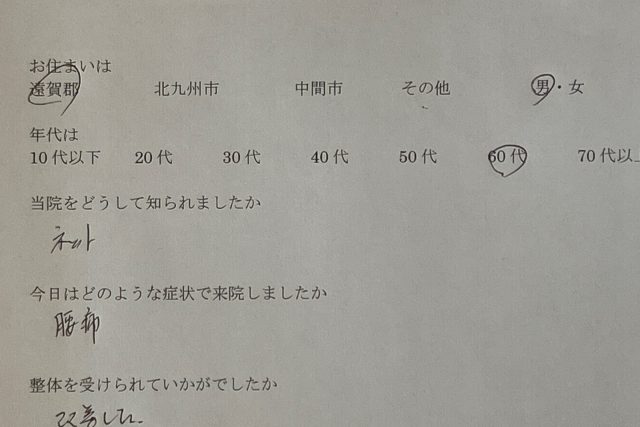 お住まいは
遠賀郡 北九州市 中間市 その他 男・女
年代は
10代以下 20代 30代 40代 50代 60代 70代以
当院をどうして知られましたか
ネット
今日はどのような症状で来院しましたか
腰痛
整体を受けられていかがでしたか
改善した